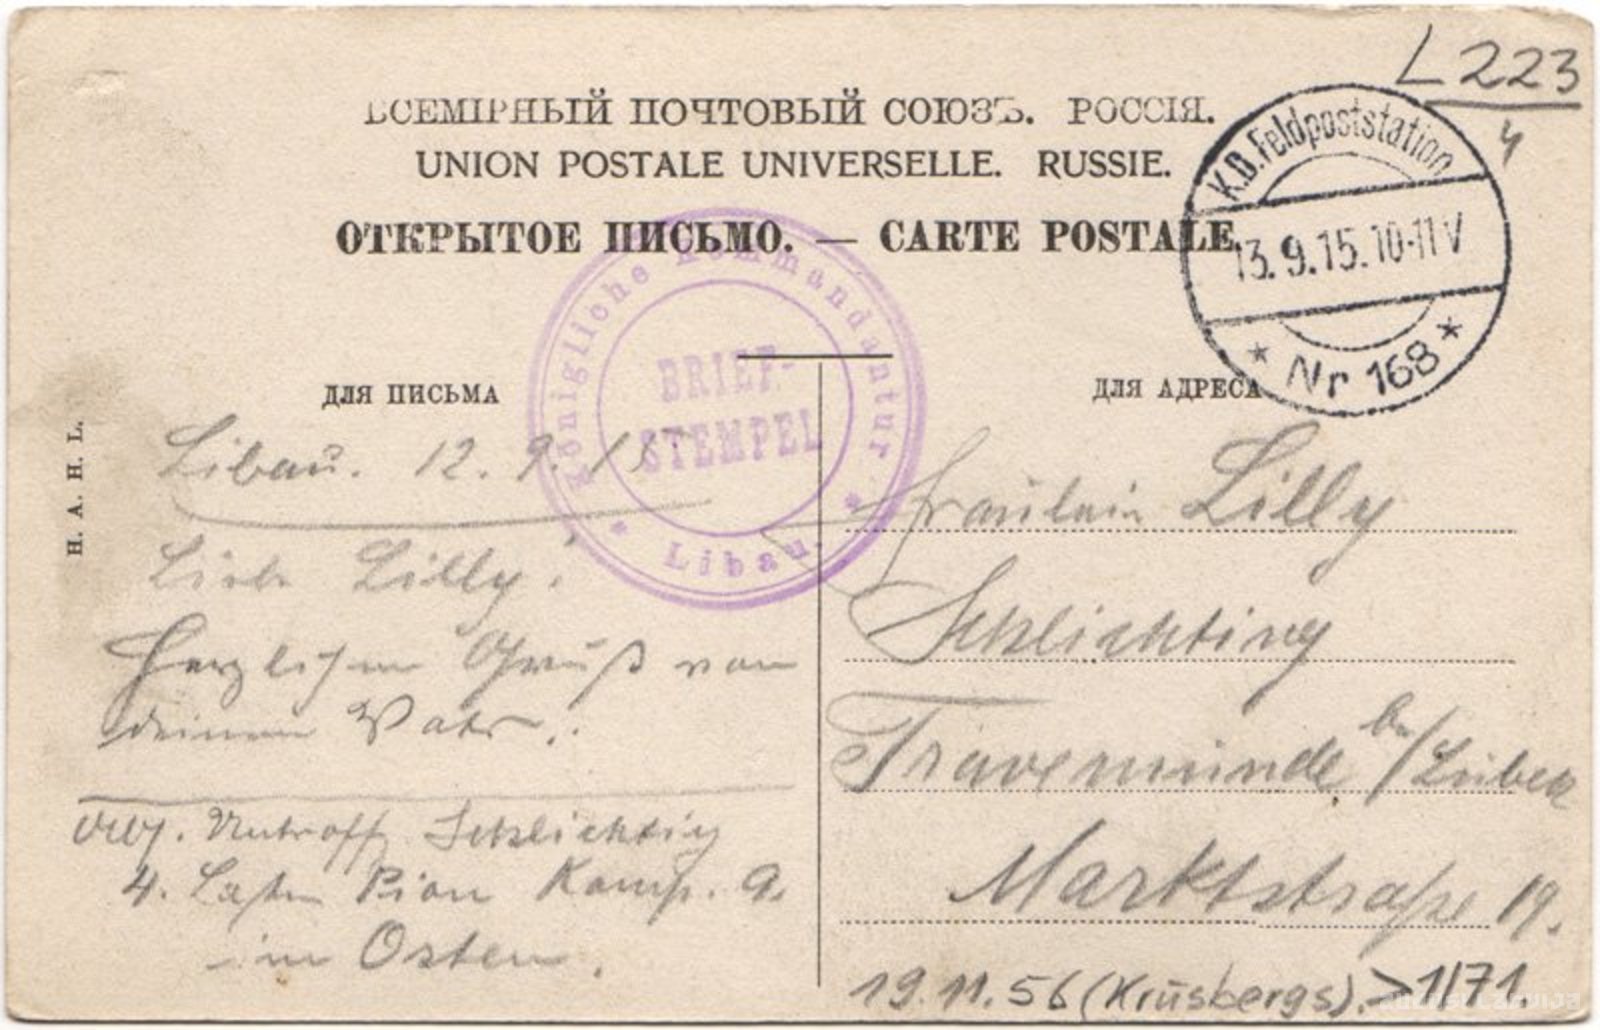 L 223
4
ВСЕМІРНЫЙ ПОЧТОВЫЙ СОЮЗЪ. РОССІЯ.
UNION POSTALE UNIVERSELLE. RUSSIE.
ОТКРЫТОЕ ПИСЬМО. — CARTE POSTALE.
K.D. Feldpoststation
13.9.15. 10-11 V
* Nr 168 *
Königliche Kommandantur
BRIEF-
STEMPEL
* Libau. *
ДЛЯ ПИСЬМА
Libau. 12. 9. 15
Liebe Lilly!
Herzlichen Gruß von
deinem Vater.
Untroff Schlichting
4. Pion Komp. 9.
im Osten.
Н. А. Н. L.
ДЛЯ АДРЕСА
Fräulein Lilly
Schlichting
Travemünde b/Lübeck
Marktstraße 19.
19.11.56 (Krusbergs). >1/71